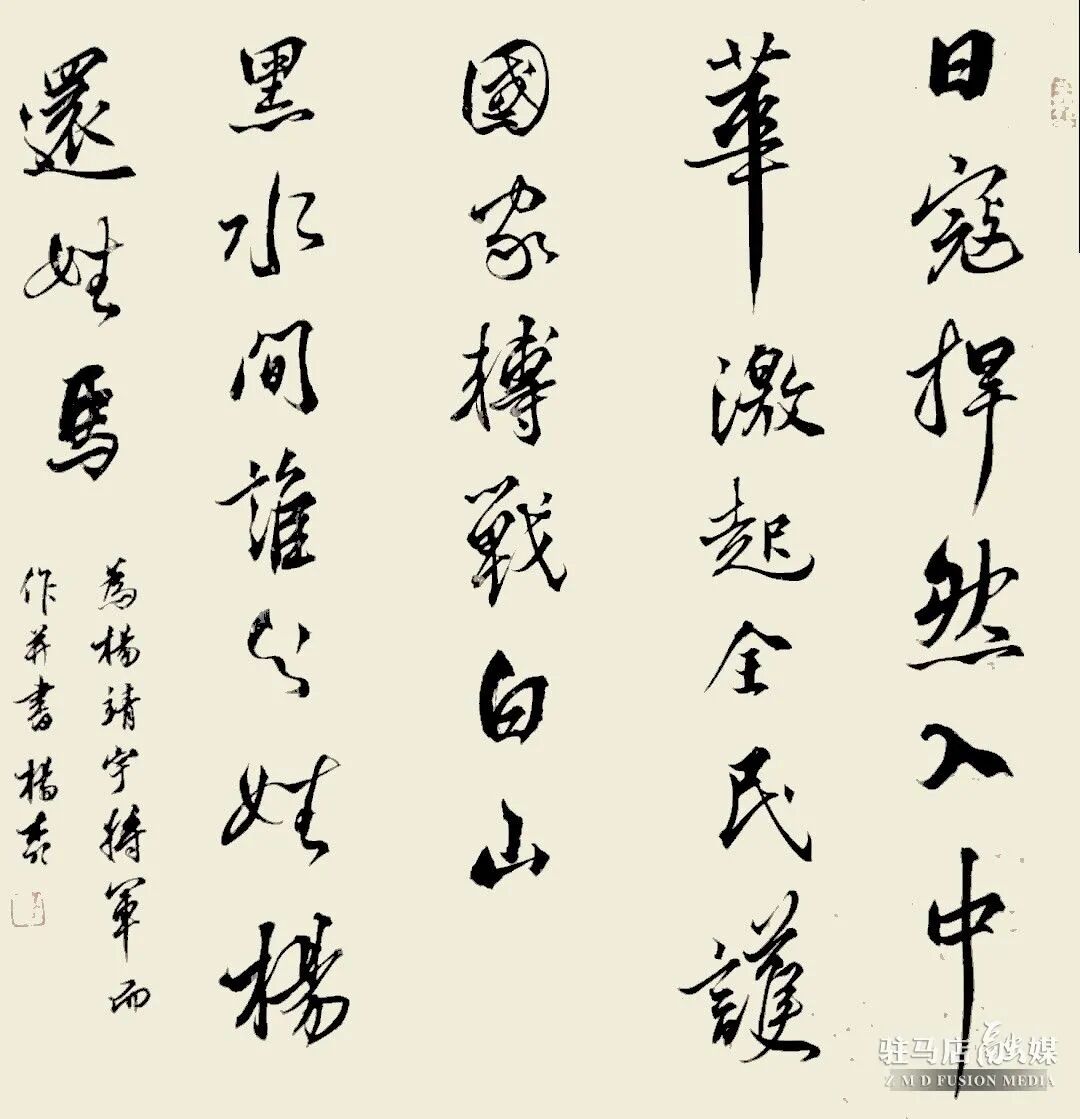 日寇捍然入中
華激起全民護
國家搏戰白山
黑水間誰分姓楊
還姓馬
為楊靖宇將軍而
作并書 楊
驻马店融媒
ZMD FUSION MEDIA